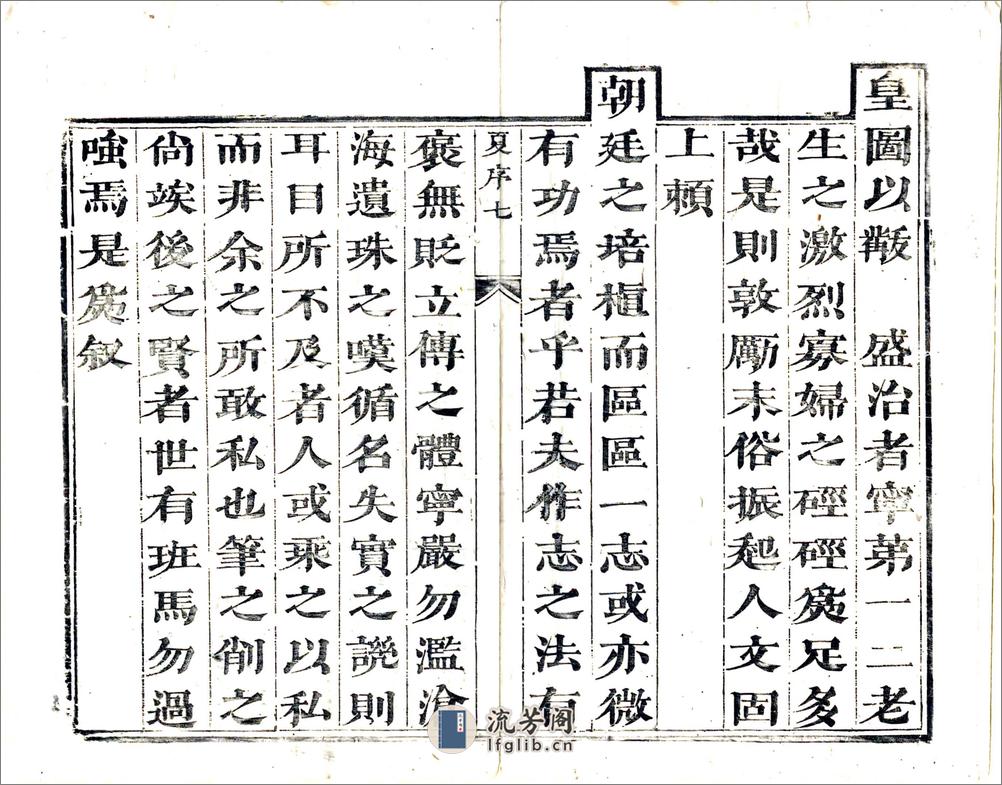 皇圖以黻　盛治者寧第一二老
生之激烈寡婦之硜硜爲足多
哉是則敦勵末俗振起人文固
上頼
朝廷之培植而區區一志或亦微
有功焉者乎若夫作志之法有
夏序七
褒無貶立傳之體寧嚴勿濫滄
海遺珠之嘆循名失實之譏則
耳目所不及者人或乘之以私
而非余之所敢私也筆之削之
尚竢後之賢者世有班馬勿過
嗤焉是爲叙
流芳阁
lfglib.cn